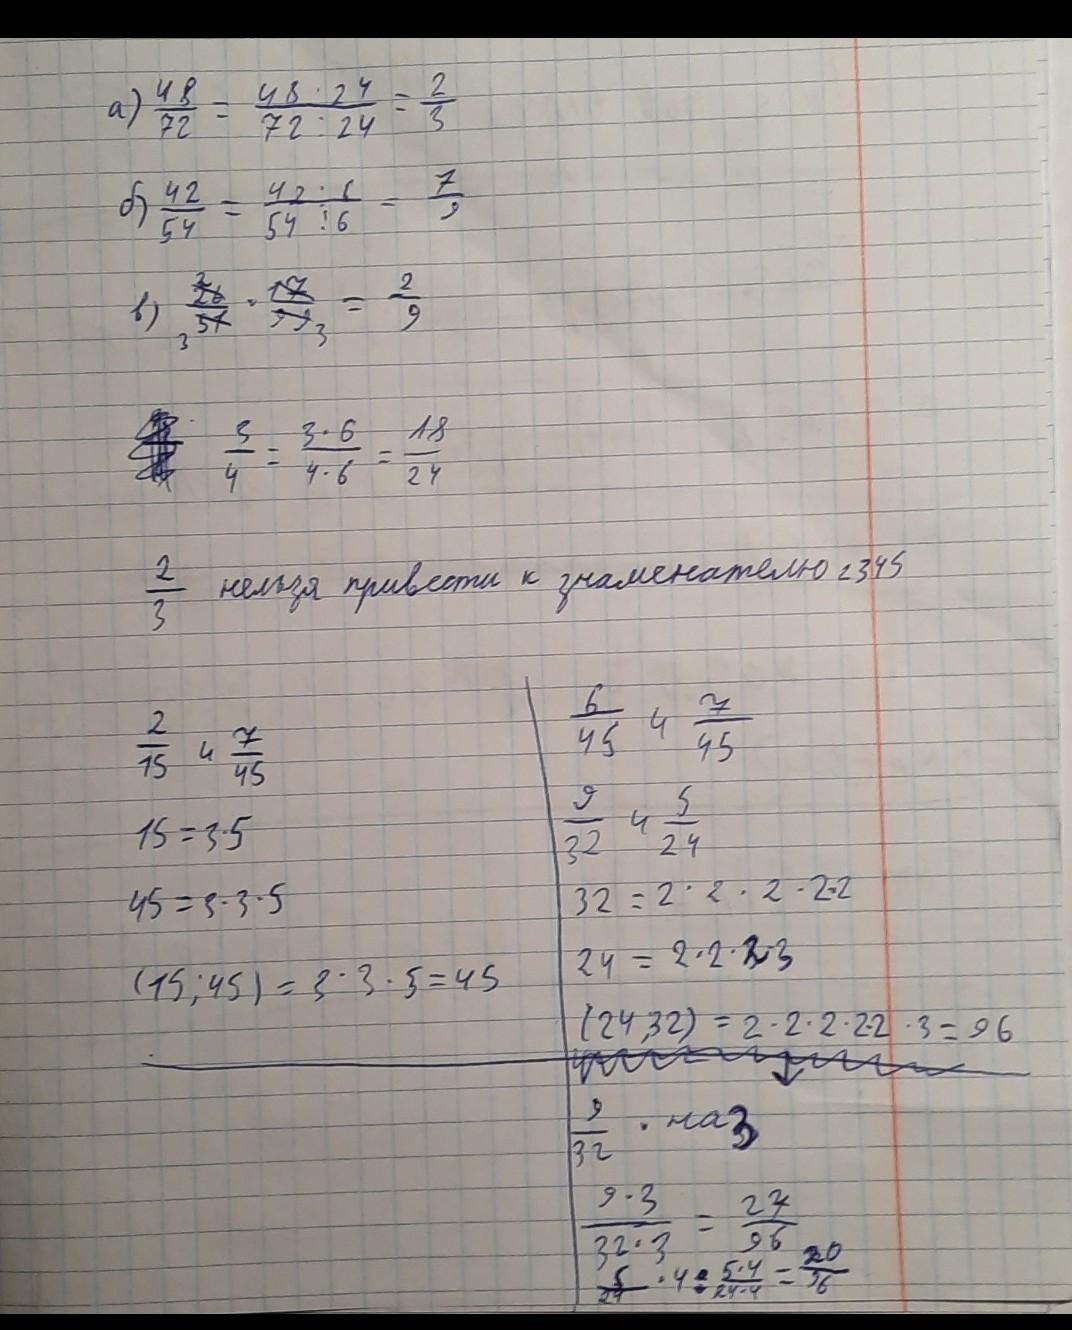 а) 48/72 = 48 : 24/72 : 24 = 2/3
б) 42/54 = 42 : 6/54 : 6 = 7/9
в) 26/51 · 17/39 = 2/9
3/4 = 3·6/4·6 = 18/24
2/3 нельзя привести к знаменателю 2345
2/15 и 7/45
15 = 3·5
45 = 3·3·5
(15; 45) = 3·3·5 = 45
6/45 и 7/45
9/32 и 5/24
32 = 2·2·2·2·2
24 = 2·2·2·3
(24, 32) = 2·2·2·2·2·3 = 96
9/32 · на 3
9·3/32·3 = 27/96
5/24 · 4 = 5·4/24·4 = 20/96